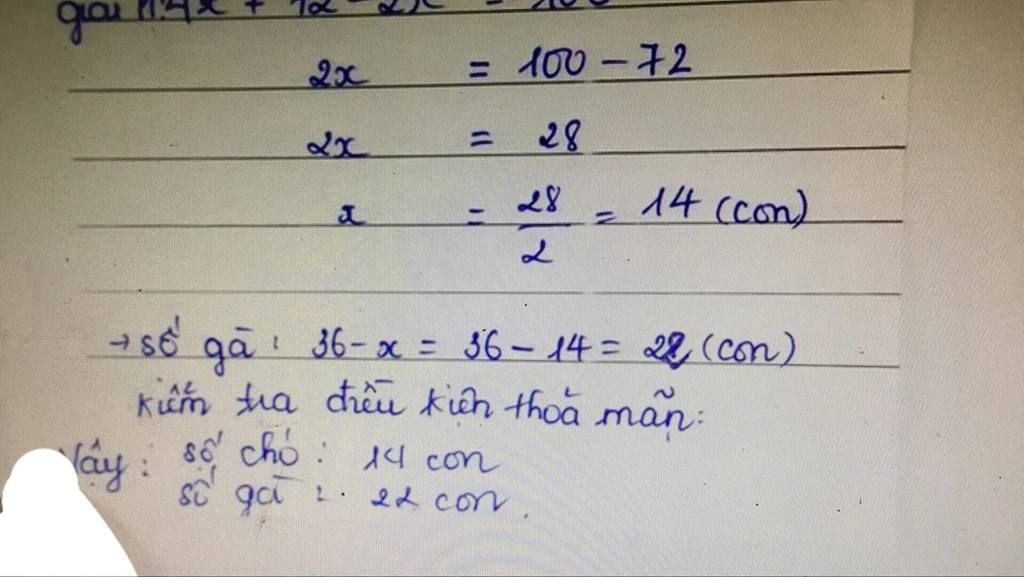 giải pt: 4x + 72 - 2x = 100
2x = 100 - 72
2x = 28
x = 28/2 = 14 (con)
→ số gà : 36 - x = 36 - 14 = 22 (con)
kiểm tra điều kiện thoả mãn:
Vậy : số chó : 14 con
số gà : 22 con.